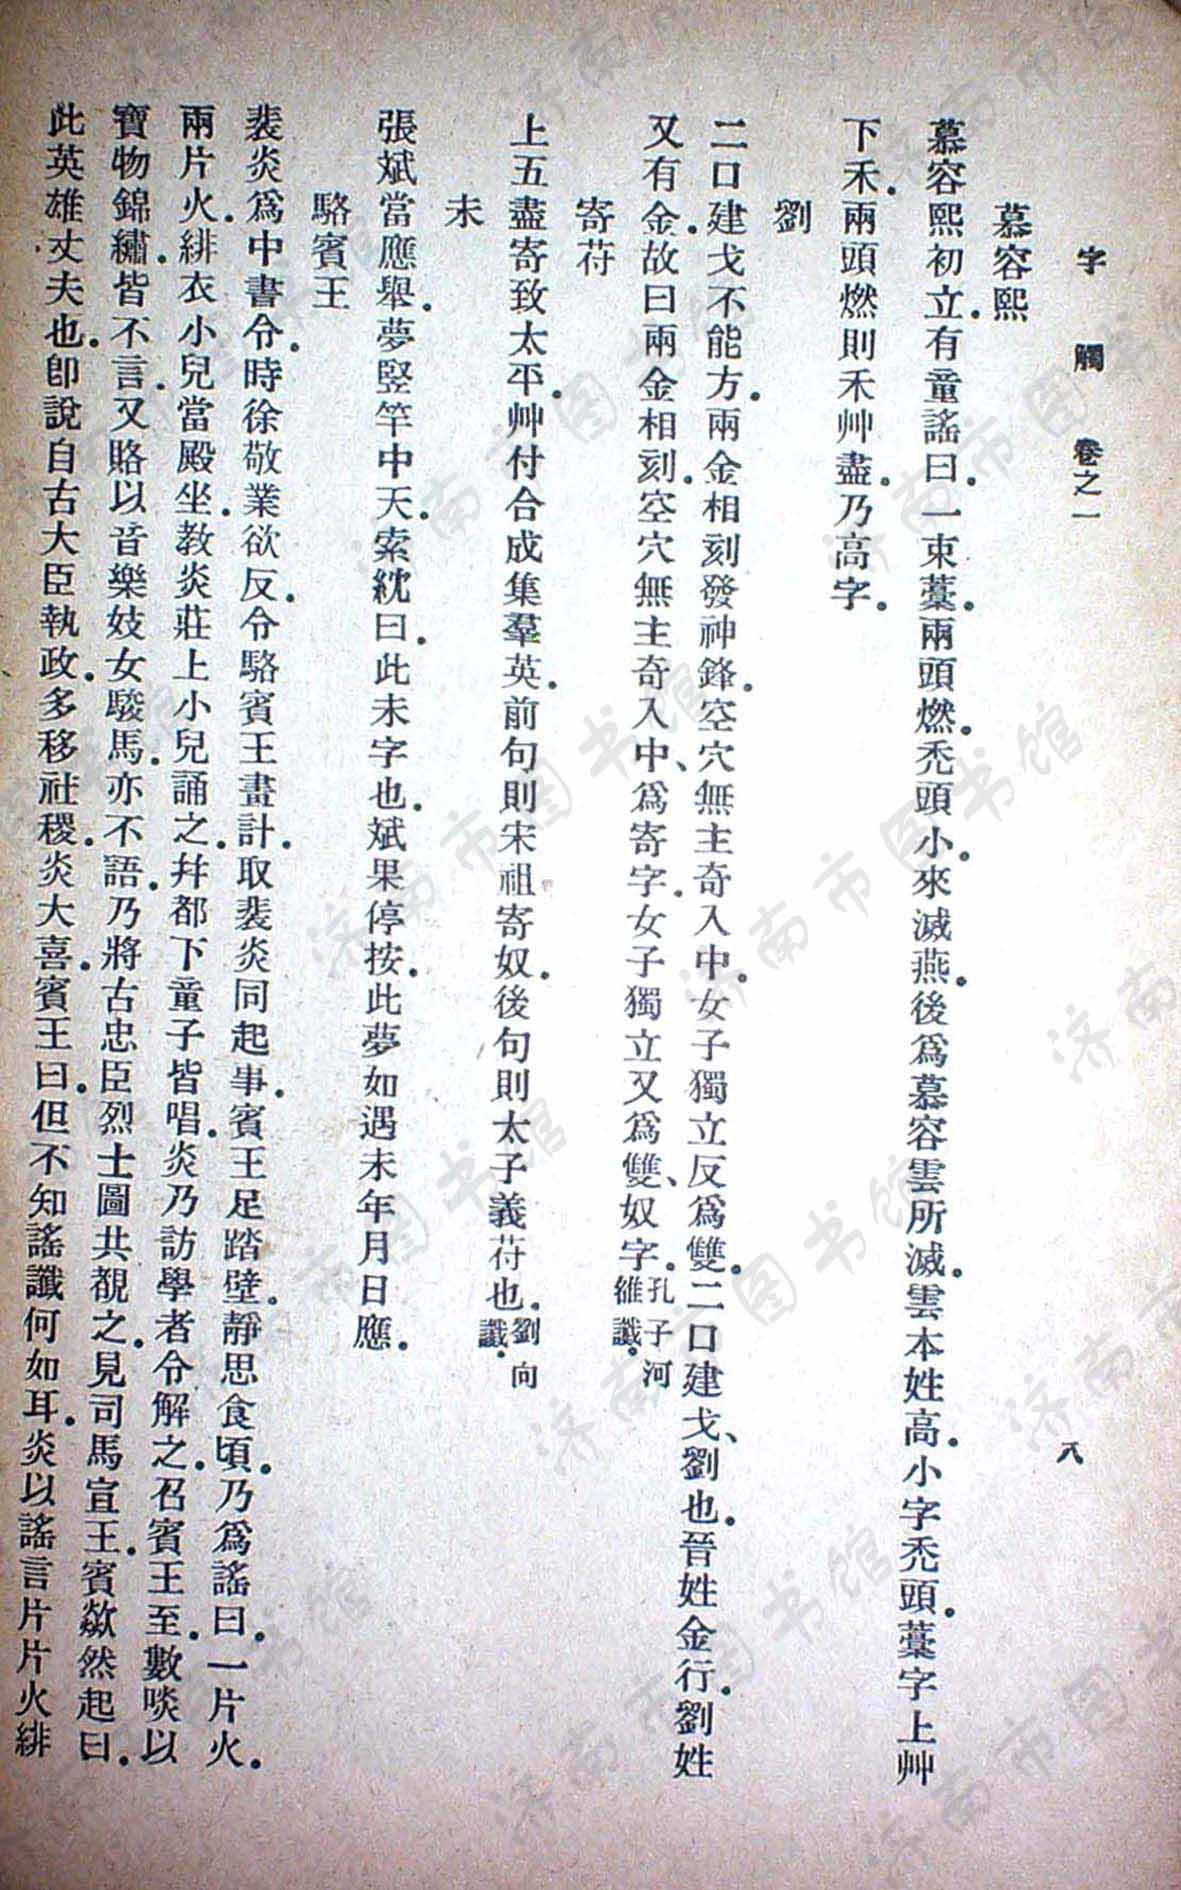 字觸 卷之一 八
慕容熙
慕容熙初立。有童謠曰。一束藁。兩頭燃。禿頭小。來滅燕。後爲慕容雲所滅。雲本姓高。小字禿頭。藁字上艸
下禾。兩頭燃則禾艸盡。乃高字。
劉
二口建戈不能方。兩金相刻發神鋒。空穴無主奇入中。女子獨立反爲雙。二口建戈、劉也。晉姓金行。劉姓
又有金。故曰兩金相刻。空穴無主奇入中、爲寄字。女子獨立又爲雙、奴字。孔子河雒讖。
寄苻
上五盡寄致太平。艸付合成集羣英。前句則宋祖寄奴。後句則太子義苻也。劉向讖。
未
張斌當應舉。夢竪竿中天。索紞曰。此未字也。斌果停按。此夢如遇未年月日應。
駱賓王
裴炎爲中書令。時徐敬業欲反。令駱賓王畫計。取裴炎同起事。賓王足踏壁。靜思食頃。乃爲謠曰。一片火。
兩片火。緋衣小兒當殿坐。教炎莊上小兒誦之。幷都下童子皆唱。炎乃訪學者令解之。召賓王至。數啖以
寶物錦繡。皆不言。又賂以音樂妓女駿馬。亦不語。乃將古忠臣烈士圖共覩之。見司馬宣王。賓歘然起曰。
此英雄丈夫也。卽說自古大臣執政。多移社稷。炎大喜。賓王曰。但不知謠讖何如耳。炎以謠言片片火緋